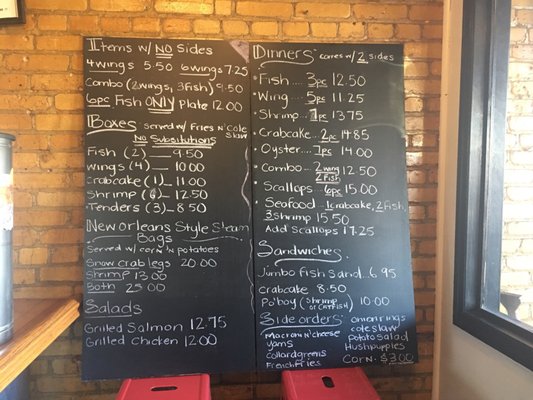 Items w/ NO Sides
4wings 5.50 6wings 7.25
Combo (2wings, 3Fish) 9.50
6pc Fish ONLY Plate 12.00
Boxes served w/ Fries N' Cole Slaw
NO Substitutions
Fish (2) 9.50
wings (4) 10.00
crabcake (1) 11.00
Shrimp (6) 12.50
Tenders (3) 8.50
New Orleans Style Steam
Bags
Served w/ corn 'n potatoes
Snow crab legs 20.00
Shrimp 13.00
Both 25.00
Salads
Grilled Salmon 12.75
Grilled Chicken 12.00
Dinners comes w/ 2 sides
Fish.... 3pc 12.50
Wing.... 5pc 11.25
Shrimp... 7pc 13.75
Crabcake... 2pc 14.85
Oyster.... 7pc 14.00
Combo... 2wing 2Fish 12.50
Scallops... 6pc 15.00
Seafood.... 1crabcake, 2fish,
3shrimp 15.50
Add Scallops 17.25
Sandwiches
Jumbo fish sand... 6.95
Crabcake 8.50
Po'boy (shrimp or catfish) 10.00
Side orders
macroni n' cheese
yams
collard greens
French Fries
onion rings
coleslaw
Potato salad
Hushpuppies
Corn - $3.00